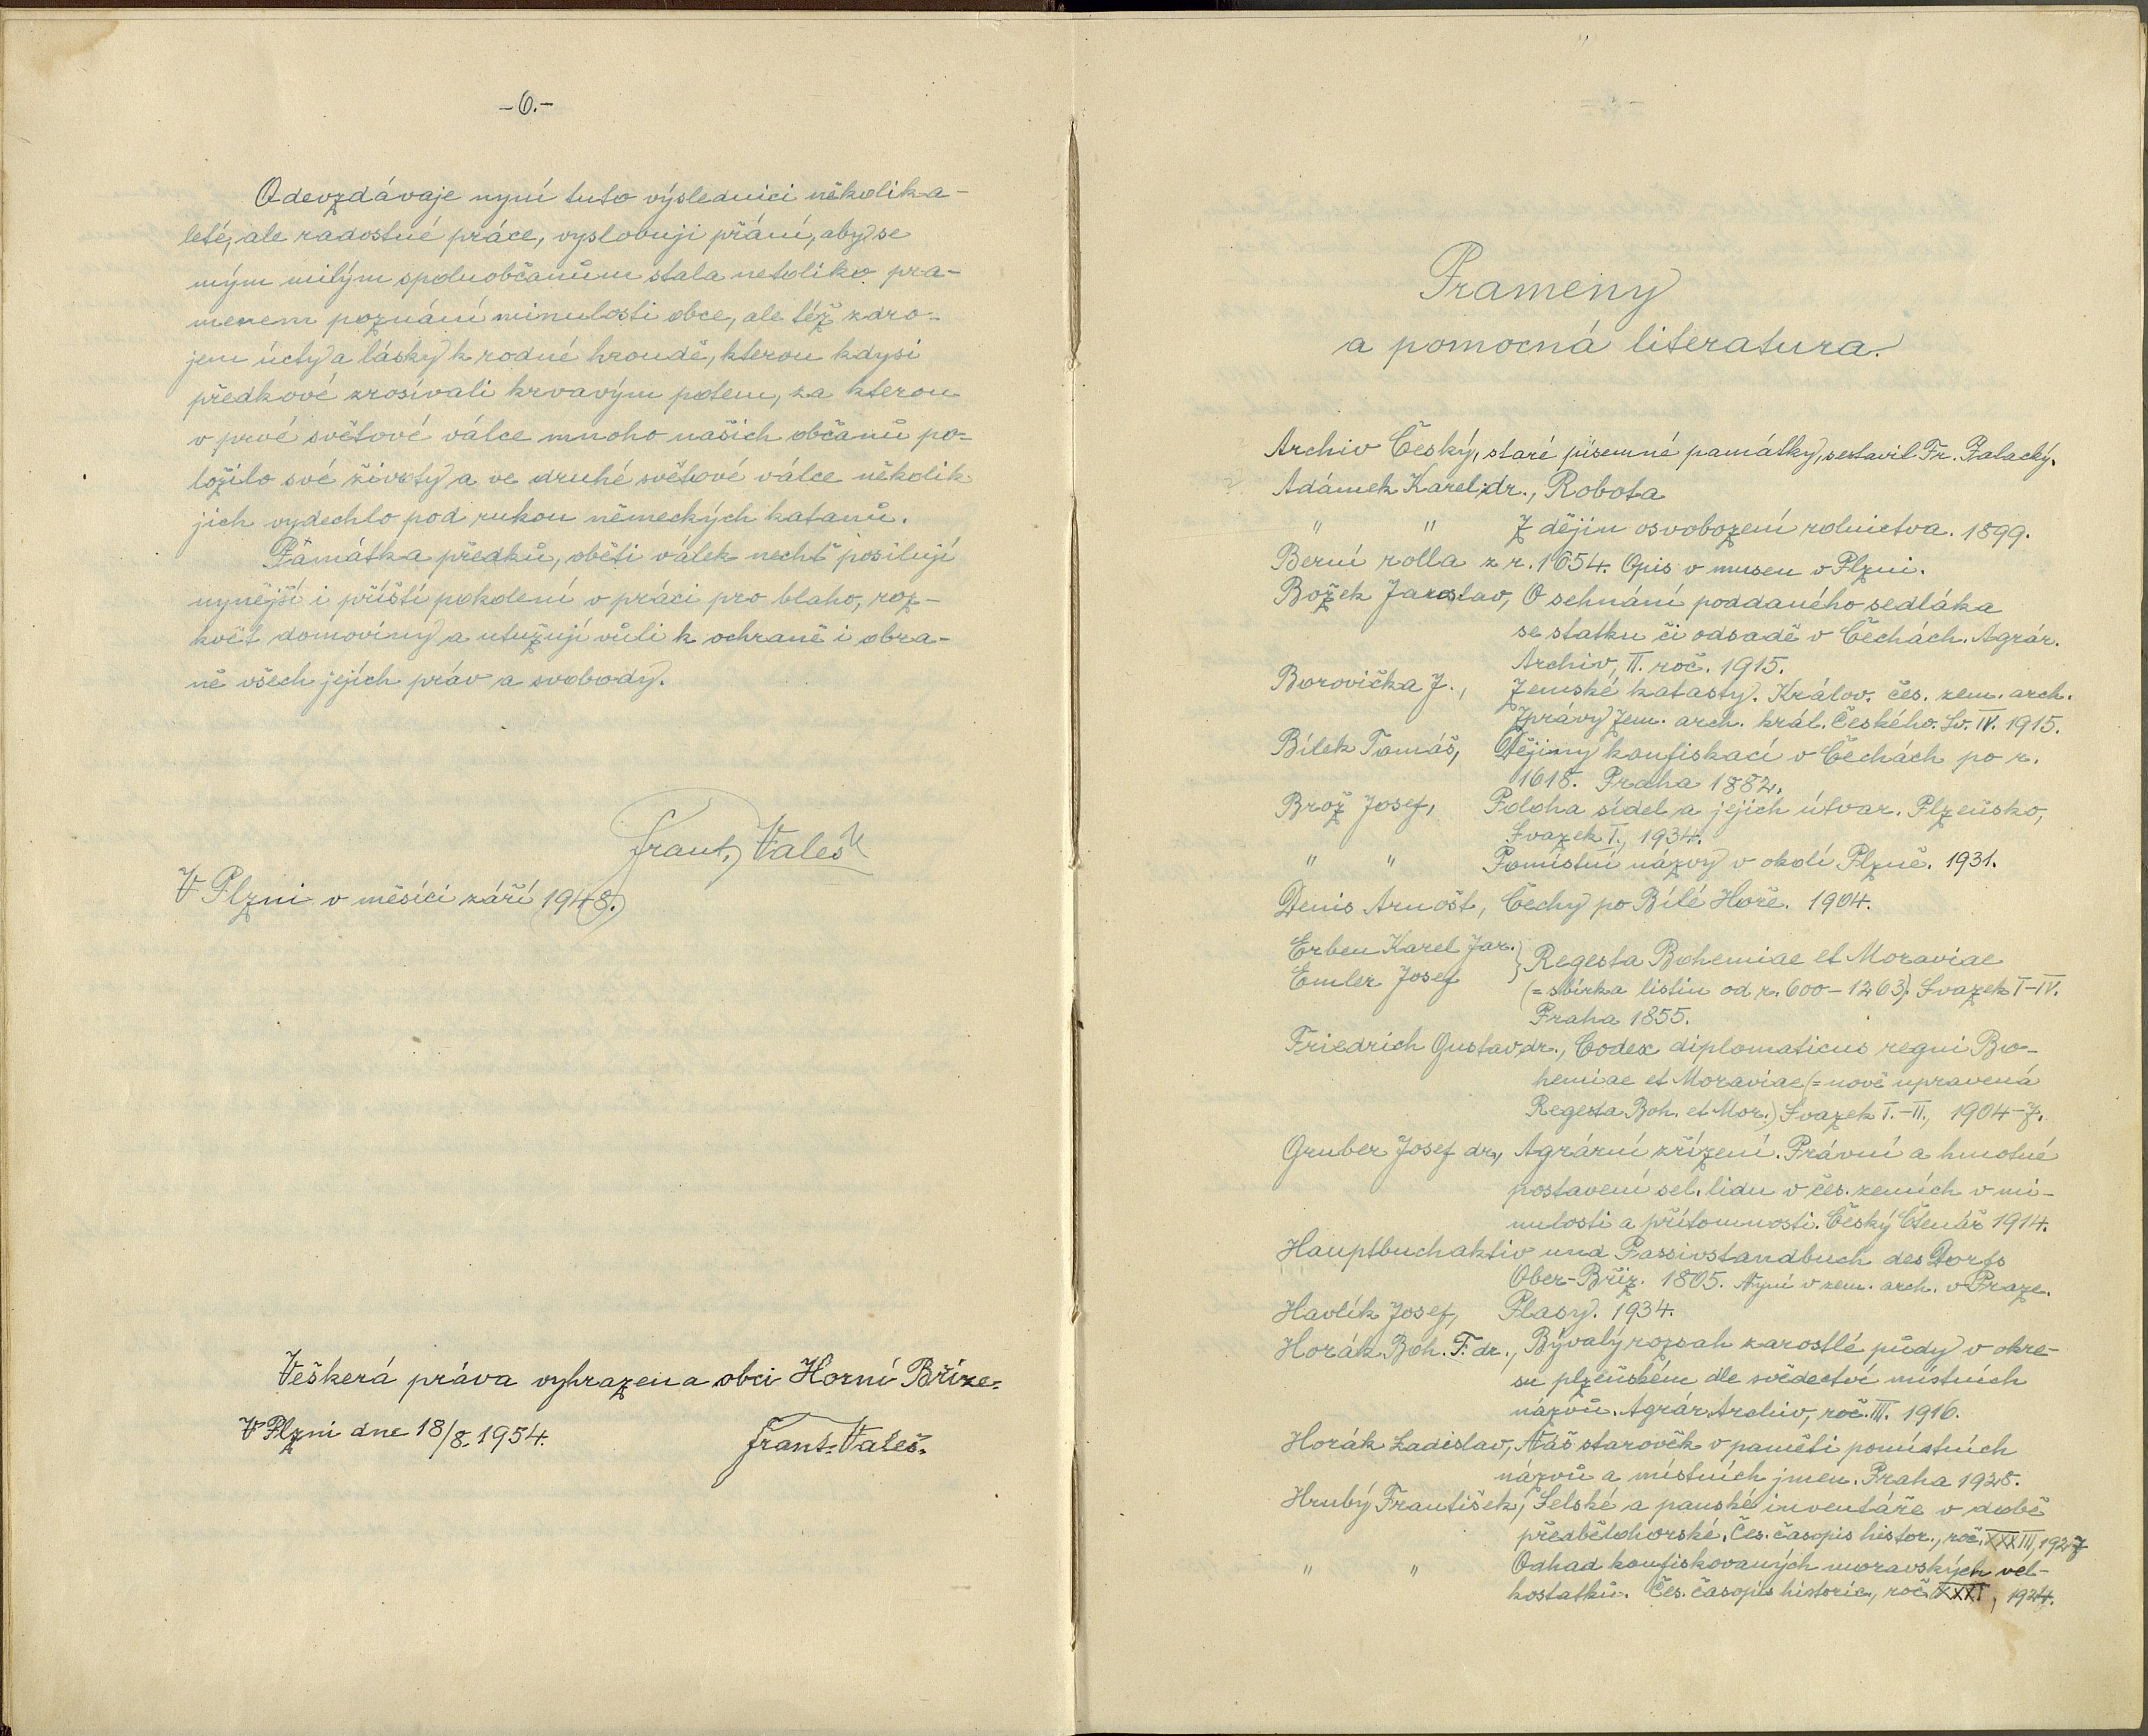 -6.-
Odevzdávaje nyní tuto výslednici několika-
leté, ale radostné práce, vyslovuji přání, aby se
mým milým spoluobčanům stala netoliko pra-
menem poznání minulosti obce, ale též zdro-
jem úcty a lásky k rodné hroudě, kterou kdysi
předkové zrosívali krvavým potem, za kterou
v prvé světové válce mnoho našich občanů po-
ložilo své životy a ve druhé světové válce několik
jich vydechlo pod rukou německých katanů.
Památka předků, oběti válek nechť posilují
nynější i příští pokolení v práci pro blaho, roz-
květ domoviny a utužují vůli k ochraně i obra-
ně všech jejích práv a svobody.
Frant. Valeš
V Plzni v měsíci září 1948.
Veškerá práva vyhrazena obci Horní Bříze.
V Plzni dne 18/8. 1954.
Frant. Valeš.
Prameny
a pomocná literatura.
Archiv Český, staré písemné památky, sestavil Fr. Palacký.
Adámek Karel, dr., Robota
" " Z dějin osvobození rolnictva. 1899.
Berní rolla z r. 1654. Opis v museu v Plzni.
Božek Jaroslav, O sehnání poddaného sedláka
se statku či odsadě v Čechách. Agrár.
Archiv, II. roč. 1915.
Borovička J., Zemské katastry. Králov. čes. zem. arch.
Zprávy Zem. arch. král. Českého. Sv. IV. 1915.
Bílek Tomáš, Dějiny konfiskací v Čechách po r.
1618. Praha 1882.
Brož Josef, Poloha sídel a jejich útvar. Plzeňsko,
Svazek I., 1934.
" " Pomístní názvy v okolí Plzně. 1931.
Denis Arnošt, Čechy po Bílé Hoře. 1904.
Erben Karel Jar. } Regesta Bohemiae et Moraviae
Emler Josef (= sbírka listin od r. 600-1263). Svazek I-IV.
Praha 1855.
Friedrich Gustav, dr., Codex diplomaticus regni Bo-
hemiae et Moraviae (= nově upravená
Regesta Boh. et Mor.) Svazek I.-II., 1904-7.
Gruber Josef dr., Agrární zřízení. Právní a hmotné
postavení sel. lidu v čes. zemích v mi-
nulosti a přítomnosti. Český Čtenář 1914.
Hauptbuchaktiv und Passivstandbuch des Dorfs
Ober-Bříz. 1805. Nyní v zem. arch. v Praze.
Havlík Josef, Plasy. 1934.
Horák Boh. F. dr., Bývalý rozsah zarostlé půdy v okre-
su plzeňském dle svědectví místních
názvů. Agrár. Archiv, roč. III. 1916.
Horák Ladislav, Náš starověk v paměti pomístních
názvů a místních jmen. Praha 1928.
Hrubý František, Selské a panské inventáře v době
předbělohorské. Čes. časopis histor., roč. XXXIII, 1927
" " Odhad konfiskovaných moravských vel-
kostatků. Čes. časopis historic., roč. XXXI, 1924.